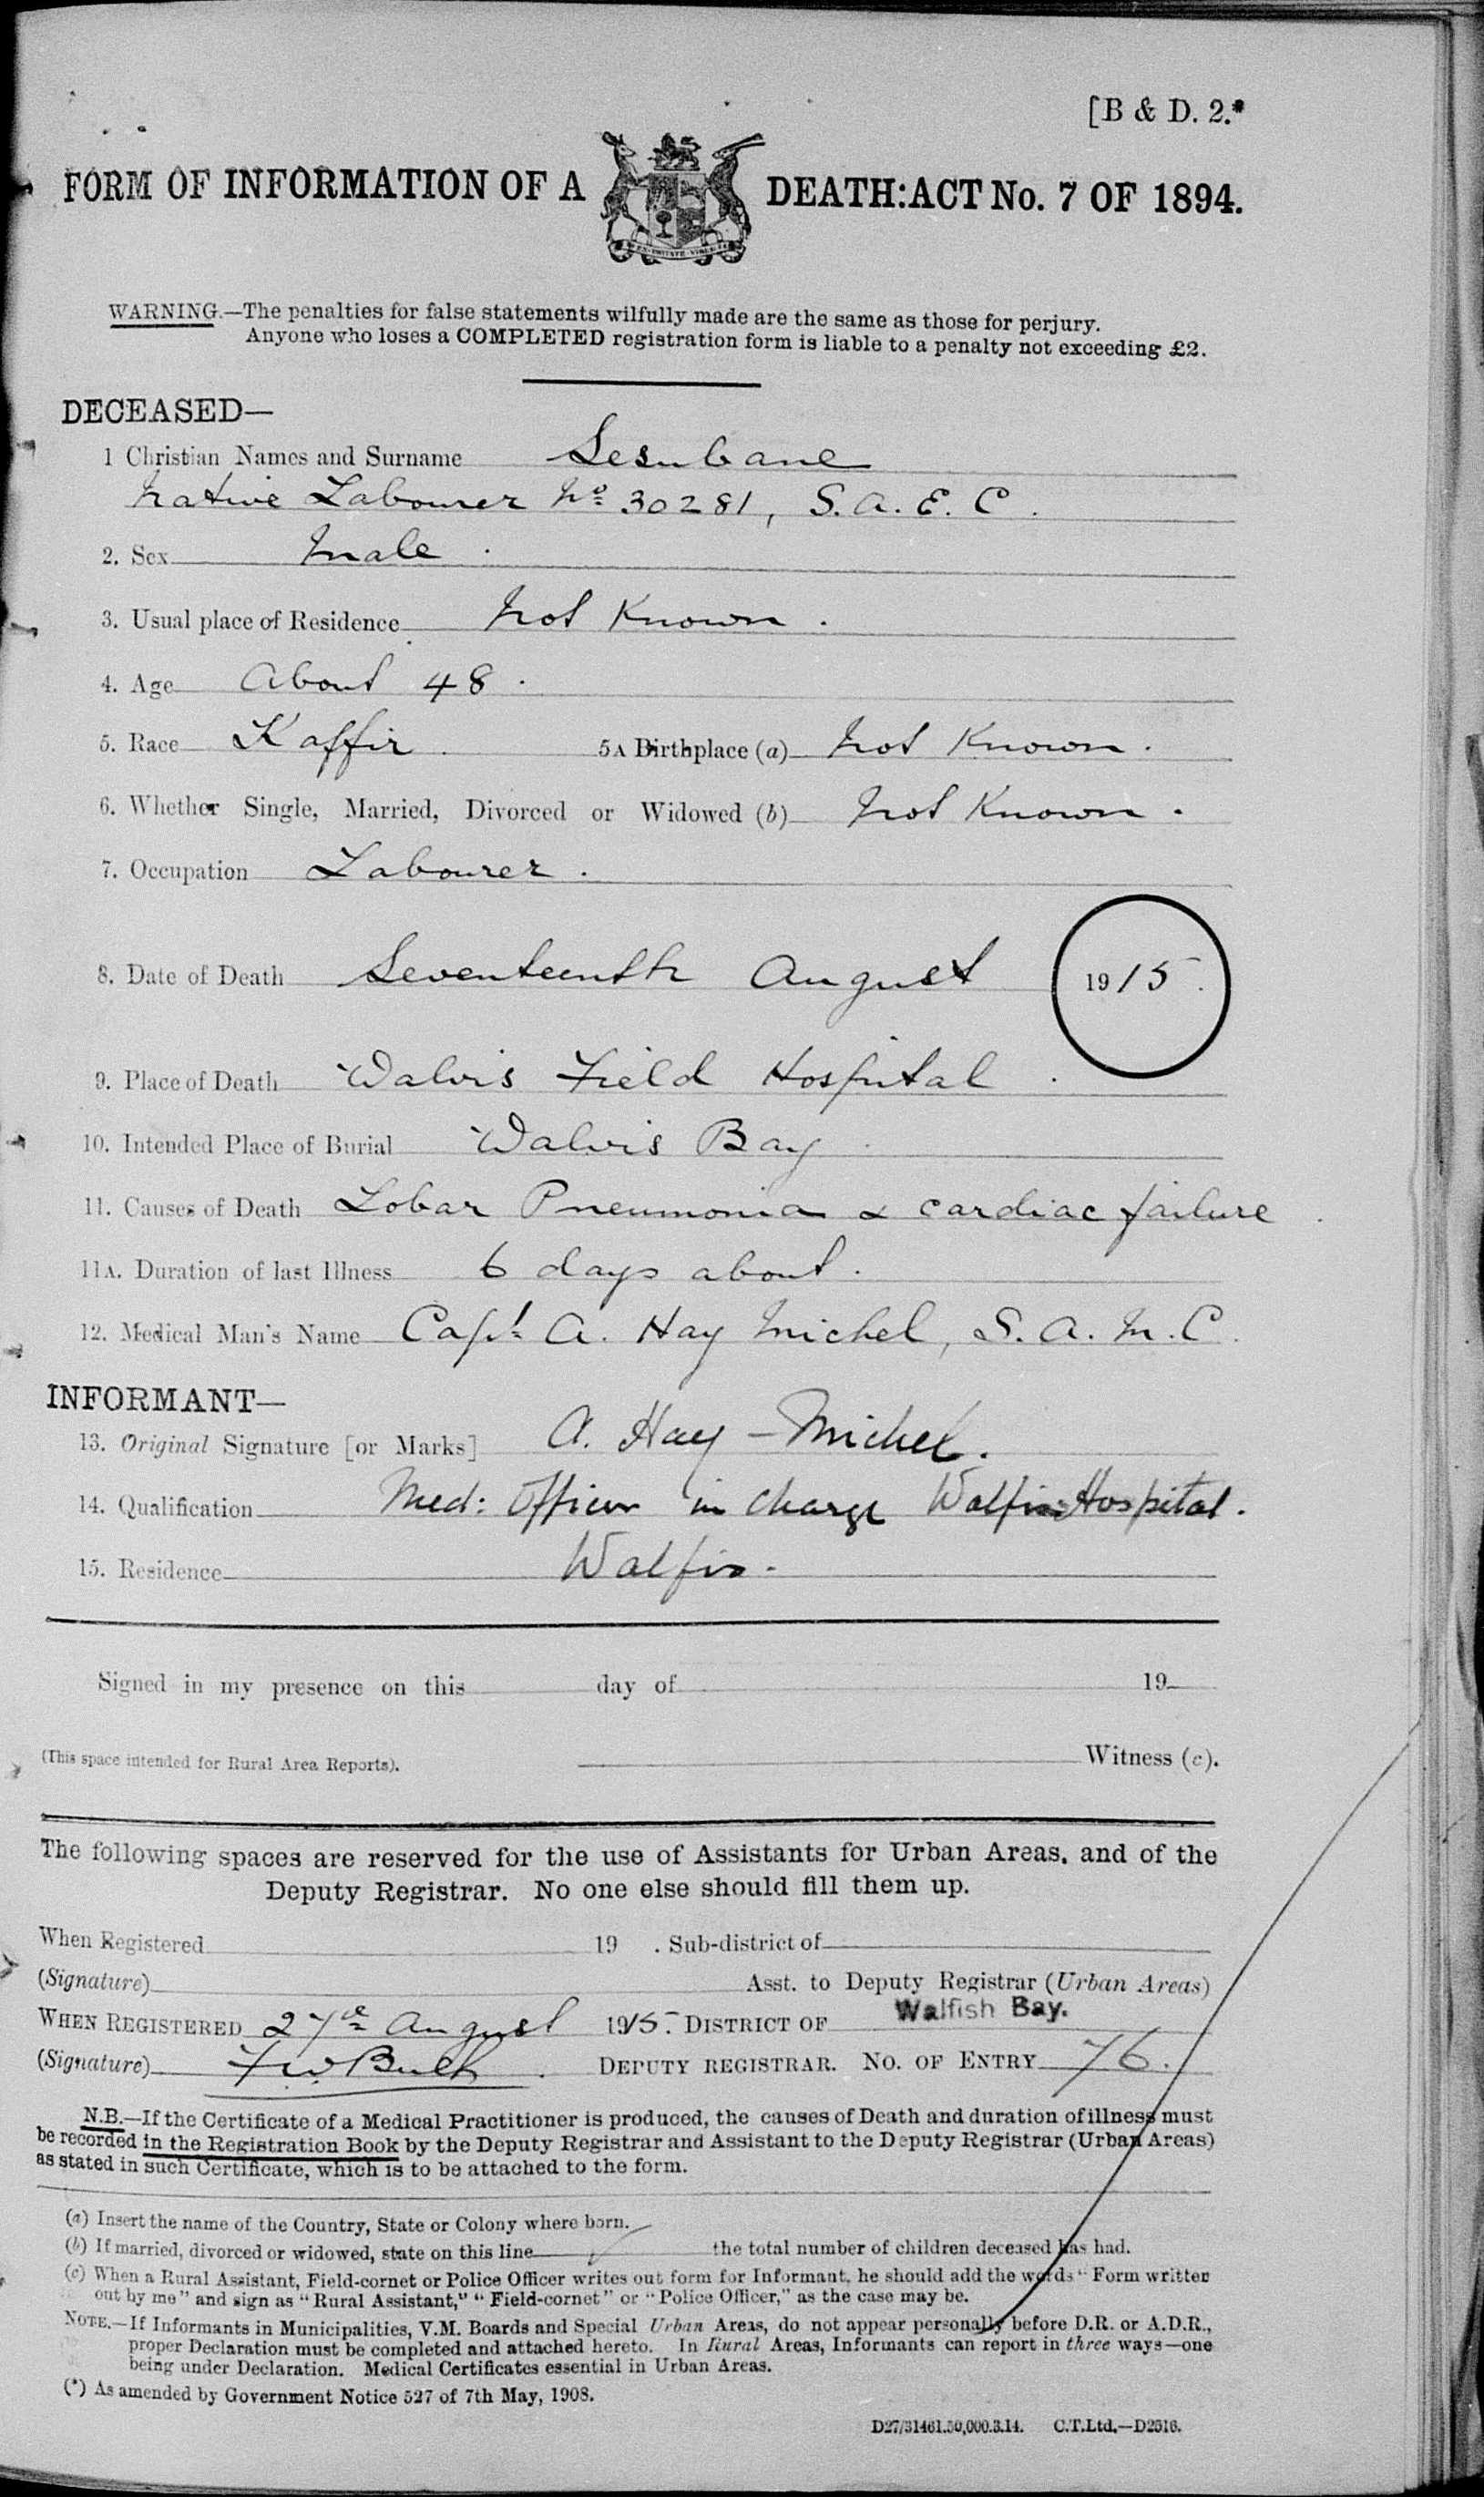 [B & D. 2.*
FORM OF INFORMATION OF A DEATH: ACT No. 7 OF 1894.
EX UNITATE VIRES
WARNING.—The penalties for false statements wilfully made are the same as those for perjury.
Anyone who loses a COMPLETED registration form is liable to a penalty not exceeding £2.
DECEASED—
1 Christian Names and Surname Sesubane
Native Labourer No 30281, S.A.E.C.
2. Sex Male.
3. Usual place of Residence Not Known.
4. Age About 48.
5. Race Kaffir. 5A Birthplace (a) Not Known.
6. Whether Single, Married, Divorced or Widowed (b) Not Known.
7. Occupation Labourer.
8. Date of Death Seventeenth August 1915.
9. Place of Death Walvis Field Hospital.
10. Intended Place of Burial Walvis Bay.
11. Causes of Death Lobar Pneumonia & cardiac failure.
11A. Duration of last Illness 6 days about.
12. Medical Man's Name Capt. A. Hay Michel, S.A.M.C.
INFORMANT—
13. Original Signature [or Marks] A. Hay-Michel.
14. Qualification Med: Officer in charge Walfis Hospital.
15. Residence Walfis.
Signed in my presence on this day of 19
(This space intended for Rural Area Reports). Witness (c).
The following spaces are reserved for the use of Assistants for Urban Areas, and of the
Deputy Registrar. No one else should fill them up.
When Registered 19 . Sub-district of
(Signature) Asst. to Deputy Registrar (Urban Areas)
WHEN REGISTERED 27th August 1915. DISTRICT OF Walfish Bay.
(Signature) F W Bult. DEPUTY REGISTRAR. NO. OF ENTRY 76.
N.B.—If the Certificate of a Medical Practitioner is produced, the causes of Death and duration of illness must
be recorded in the Registration Book by the Deputy Registrar and Assistant to the Deputy Registrar (Urban Areas)
as stated in such Certificate, which is to be attached to the form.
(a) Insert the name of the Country, State or Colony where born.
(b) If married, divorced or widowed, state on this line the total number of children deceased has had.
(c) When a Rural Assistant, Field-cornet or Police Officer writes out form for Informant, he should add the words "Form written
out by me" and sign as "Rural Assistant," "Field-cornet" or "Police Officer," as the case may be.
NOTE.—If Informants in Municipalities, V.M. Boards and Special Urban Areas, do not appear personally before D.R. or A.D.R.,
proper Declaration must be completed and attached hereto. In Rural Areas, Informants can report in three ways—one
being under Declaration. Medical Certificates essential in Urban Areas.
(*) As amended by Government Notice 527 of 7th May, 1908.
D27/31461.50,000.3.14. C.T.Ltd.—D2516.